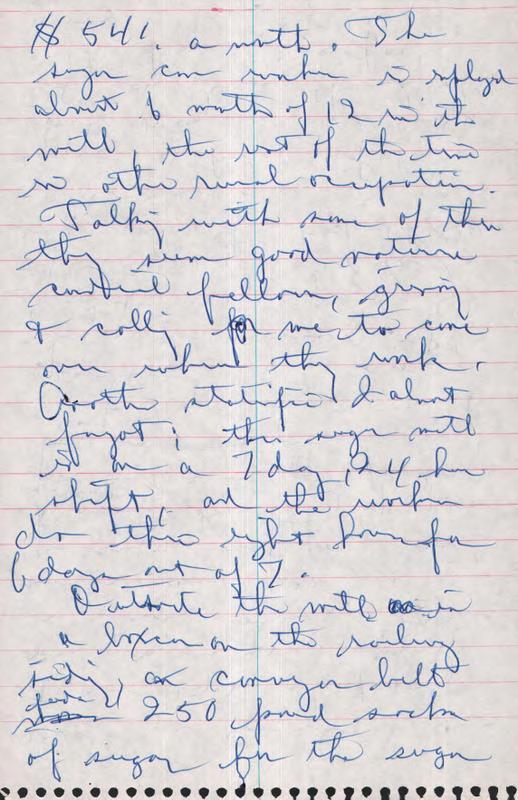 $541. a month. The
sugar cane worker is employed
almost 6 months of 12 in the
mill, the rest of the time
in other rural occupation.
Talking with some of them
they seem good nature
cordial fellows,
& calling for me to come
over where they work.
Another statistic I almost
forgot; this sugar mill
is on a 7 day, 24 hour
shift, and the workers
do their eight hours for
6 days out of 7.
Outside the mill in
a boxcar on the railway
siding, a conveyor belt
250 pound sacks
of sugar for the sugar